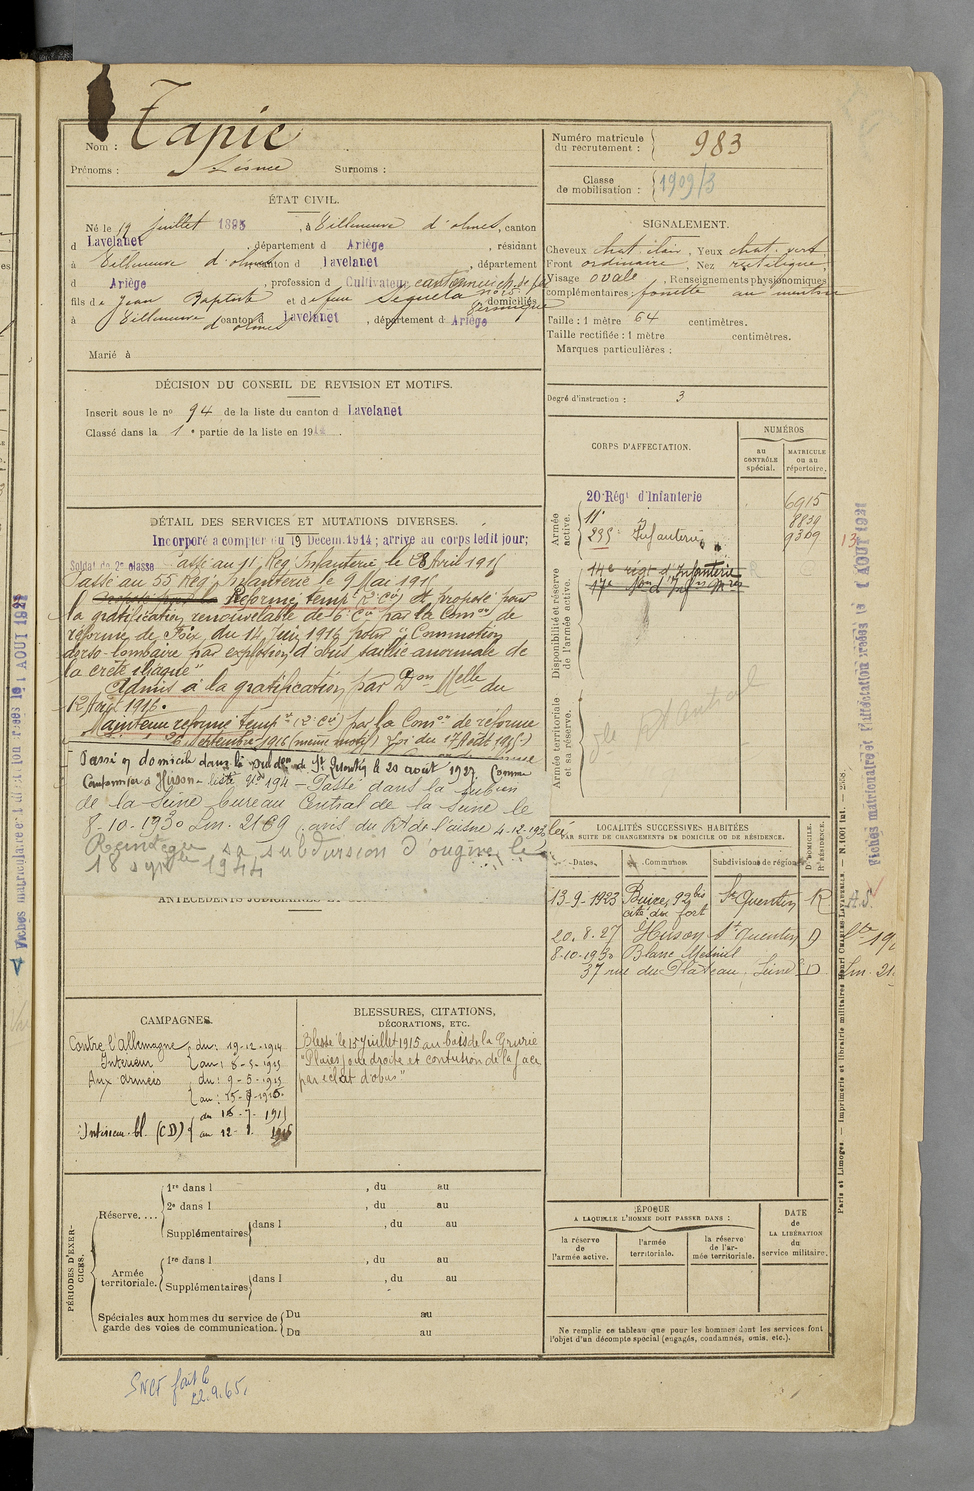 Nom : Tapie
Prénoms : Surnoms :
Numéro matricule du recrutement : 983
Classe de mobilisation : 1909/3
ÉTAT CIVIL.
Né le 19 juillet 1895, à Villeneuve d'olmes, canton
d Lavelanet, département d Ariège, résidant
à Villeneuve d'olmes canton d Lavelanet, département
d Ariège, profession d Cultivateur cantonnier ch. de fer
fils de Jean Baptiste et de feue Segueta Véronique domiciliés
à Villeneuve d'olmes canton d Lavelanet, département d Ariège
Marié à
SIGNALEMENT.
Cheveux chat. clair, Yeux chat. vert
Front ordinaire, Nez rectiligne
Visage ovale, Renseignements physionomiques
complémentaires : fossette au menton
Taille : 1 mètre 64 centimètres.
Taille rectifiée : 1 mètre centimètres.
Marques particulières :
Degré d'instruction : 3
DÉCISION DU CONSEIL DE REVISION ET MOTIFS.
Inscrit sous le nº 94 de la liste du canton d Lavelanet
Classé dans la 1e partie de la liste en 191
CORPS D'AFFECTATION.
NUMÉROS
au CONTRÔLE spécial.
MATRICULE ou au répertoire.
Armée active.
20e Régt d'Infanterie 6915
11e 8839
295e Infanterie 9309
Disponibilité et réserve de l'armée active.
14e régt d'Infanterie
17e
Armée territoriale et sa réserve.
DÉTAIL DES SERVICES ET MUTATIONS DIVERSES.
Incorporé à compter du 19 Décem. 1914; arrivé au corps ledit jour;
Soldat de 2e classe Passé au 11e Rég. Infanterie le 8 Avril 1915
Passé au 55 Rég. Infanterie le 9 Mai 1915
Proposé par la Réformé temp. (2e Cie) et proposé pour
la gratification renouvelable de 6e Cie par la Comon de
réforme de Foix, du 14 Juin 1916 pour "Commotion
dorso-lombaire par explosion d'obus saillie anormale de
la crête iliaque"
Admis à la gratification par Don Melle du
12 Août 1916.
Maintenu réformé temp. (2e Cie) par la Comon de réforme
26 Septembre 1916 (même motif)
Passé en domicile dans la subdon de St Quentin le 20 août 1927. Comme
Cantonnier à Hirson - Passé dans la subon
de la Seine bureau Central de la Seine le
8-10-1930 Lm. 2169 avis du Rt de l'aisne 4-12-1930
Réintègre sa subdivision d'origine le
18 sept 1944
ANTÉCÉDENTS JUDICIAIRES ET
LOCALITÉS SUCCESSIVES HABITÉES
PAR SUITE DE CHANGEMENTS DE DOMICILE OU DE RÉSIDENCE.
Dates. Communes. Subdivisions de région. D. DOMICILE. R. RÉSIDENCE.
13-9-1923 Buire, 92 bis cité du fort St Quentin R
20.8.27 Hirson St Quentin D
8-10-1930 Blanc Mesnil
37 rue du Plateau Seine D
CAMPAGNES.
Contre l'Allemagne
Intérieur du : 19-12-1914 au : 8-5-1915
Aux armées du : 9-5-1915
Intérieur bl. (CD)
BLESSURES, CITATIONS,
DÉCORATIONS, ETC.
Blessé le 15 Juillet 1915 au bois de la Grurie
"Plaies joue droite et contusion de la face
par éclat d'obus"
PÉRIODES D'EXERCICES.
Réserve....
1re dans l , du au
2e dans l , du au
Supplémentaires dans l , du au
Armée territoriale.
1re dans l , du au
Supplémentaires dans l , du au
Spéciales aux hommes du service de garde des voies de communication.
Du au
Du au
ÉPOQUE
A LAQUELLE L'HOMME DOIT PASSER DANS :
la réserve de l'armée active.
l'armée territoriale.
la réserve de l'armée territoriale.
DATE de LA LIBÉRATION du service militaire.
Ne remplir ce tableau que pour les hommes dont les services font
l'objet d'un décompte spécial (engagés, condamnés, omis, etc.).
Paris et Limoges. — Imprimerie et librairie militaires Henri CHARLES-LAVAUZELLE.
SNCF
22.9.65.